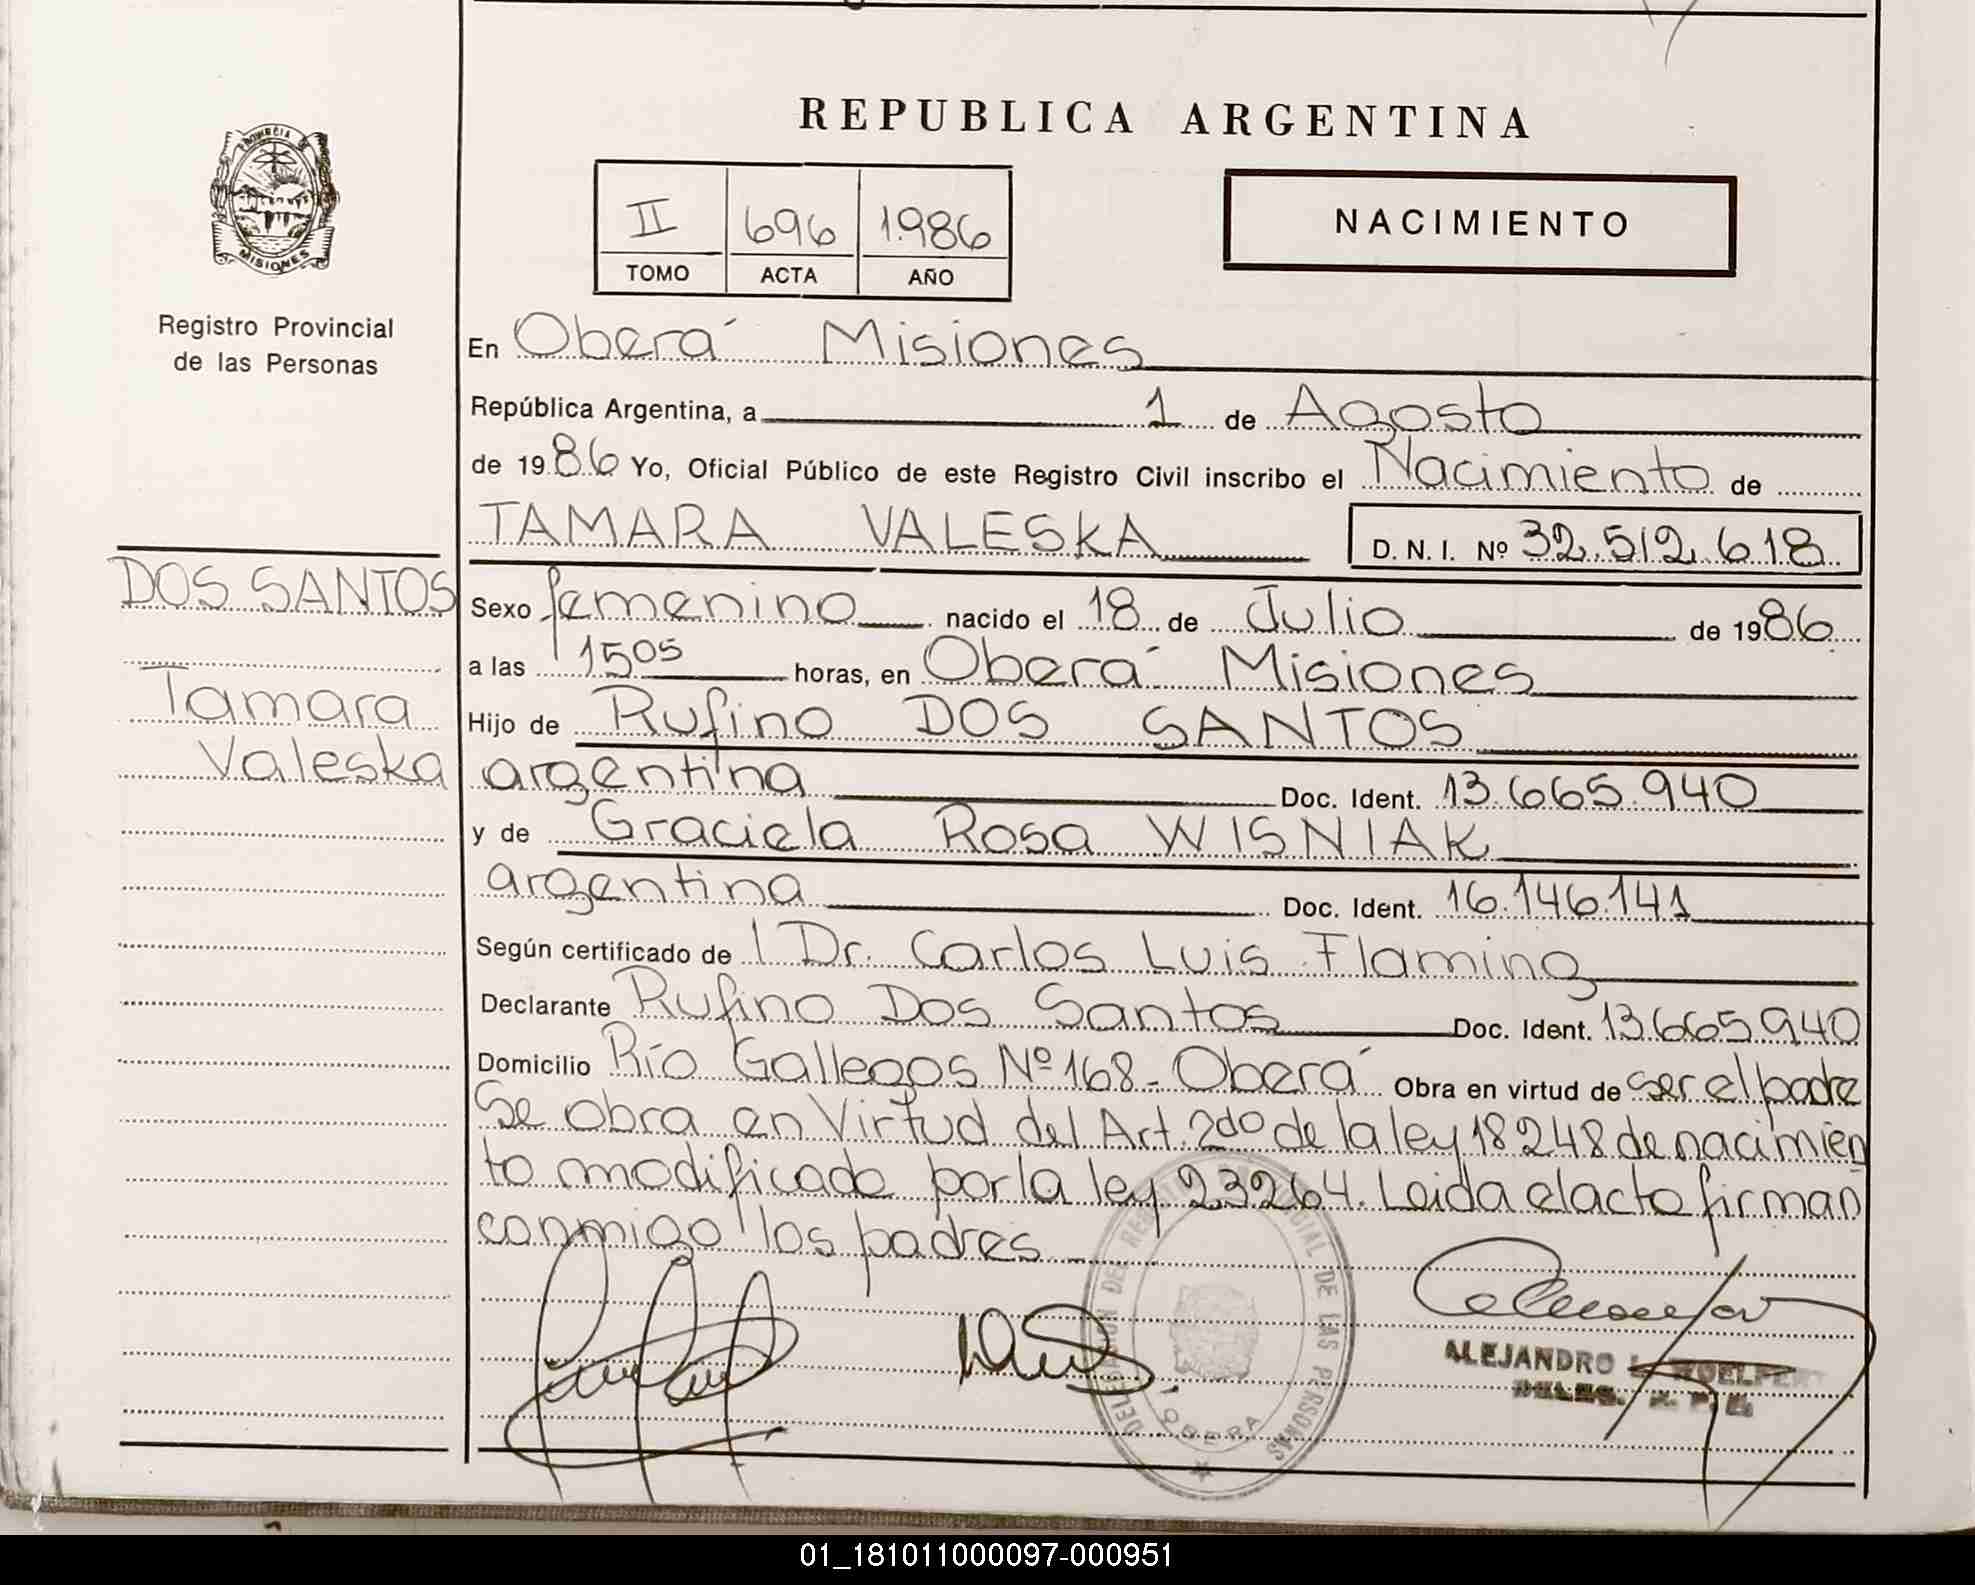 REPUBLICA ARGENTINA
PROVINCIA DE
MISIONES
Registro Provincial
de las Personas
II 696 1.986
TOMO ACTA AÑO
NACIMIENTO
En Oberá Misiones
República Argentina, a 1 de Agosto
de 1986 Yo, Oficial Público de este Registro Civil inscribo el Nacimiento de
TAMARA VALESKA D. N. I. Nº 32.512.618
DOS SANTOS
Tamara
Valeska
Sexo femenino nacido el 18 de Julio de 1986
a las 15 05 horas, en Oberá Misiones
Hijo de Rufino DOS SANTOS
argentina Doc. Ident. 13.665.940
y de Graciela Rosa WISNIAK
argentina Doc. Ident. 16.146.141
Según certificado de l Dr. Carlos Luis Flaming
Declarante Rufino Dos Santos Doc. Ident. 13665940
Domicilio Río Gallegos Nº 168 - Oberá Obra en virtud de ser el padre
Se obra en Virtud del Art. 2do de la ley 18248 de nacimien
to modificado por la ley 23264. Leida el acta firman
conmigo los padres
DELEGACION DEL REGISTRO PROVINCIAL DE LAS PERSONAS
OBERA
ALEJANDRO L. WOELFERT
DELEG. R. P. P.
01_181011000097-000951